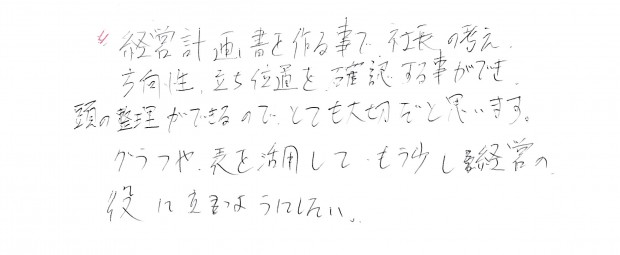 経営計画書を作る事で、社長の考え、
方向性、立ち位置を、確認する事ができ、
頭の整理ができるので、とても大切だと思います。
グラフや、表を活用して、もう少し経営の
役に立つようにしたい。